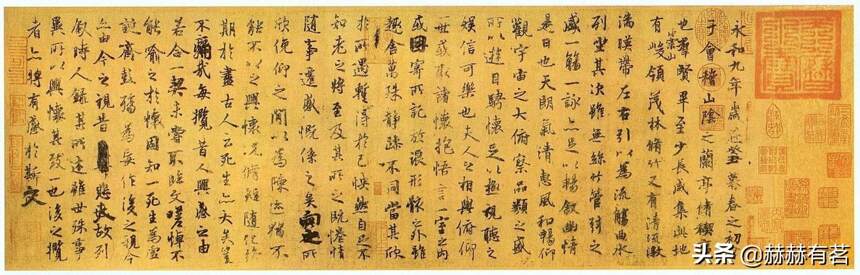 永和九年歲在癸丑暮春之初會
于會稽山陰之蘭亭脩稧事
也群賢畢至少長咸集此地
有崇山峻領茂林脩竹又有清流激
湍暎帶左右引以為流觴曲水
列坐其次雖無絲竹管弦之
盛一觴一詠亦足以暢敘幽情
是日也天朗氣清惠風和暢仰
觀宇宙之大俯察品類之盛
所以遊目騁懷足以極視聽之
娛信可樂也夫人之相與俯仰
一世或取諸懷抱悟言一室之內
或因寄所託放浪形骸之外雖
趣舍萬殊靜躁不同當其欣
於所遇蹔得於己怏然自足不
知老之將至及其所之既惓情
隨事遷感慨係之矣向之所
欣俛仰之閒以為陳迹猶不
能不以之興懷況脩短隨化終
期於盡古人云死生亦大矣豈
不痛哉每攬昔人興感之由
若合一契未嘗不臨文嗟悼不
能喻之於懷固知一死生為虛
誕齊彭殤為妄作後之視今
亦由今之視昔悲夫故列
敘時人錄其所述雖世殊事
異所以興懷其致一也後之攬
者亦將有感於斯文
头条 @赫赫有茗